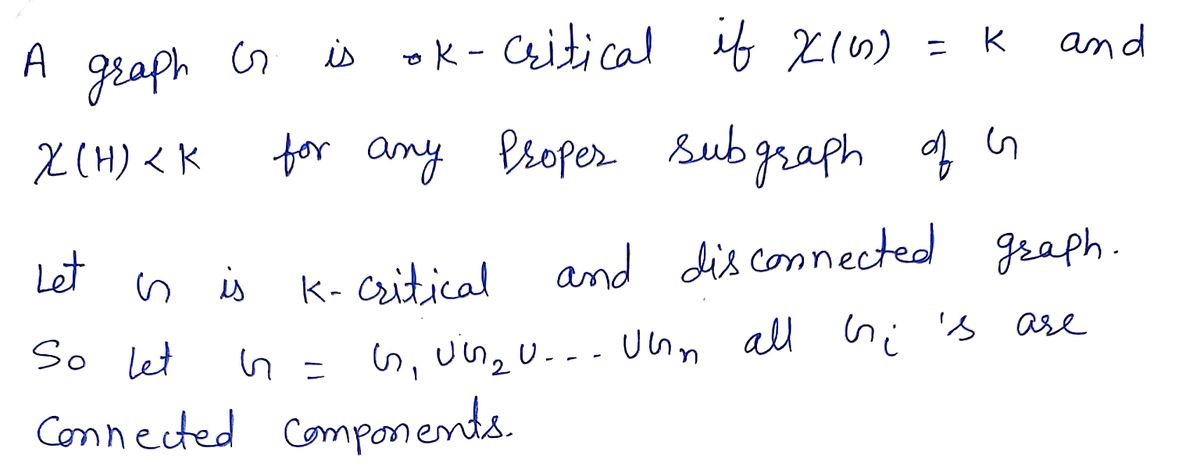 A graph G is k-critical if χ(G) = k and
χ(H) < k for any proper subgraph of G
Let G is k-critical and disconnected graph.
So let G = G₁ ∪ G₂ ∪ --- ∪ Gₙ all Gᵢ 's are
connected components.